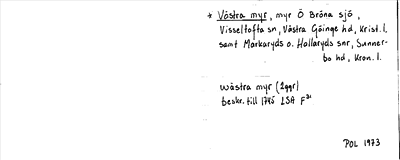 * Västra myr, myr Ö Bröna sjö,
Visseltofta sn, Västra Göinge hd, Krist. l.
samt Markaryds o. Hallaryds snr, Sunner-
bo hd, Kron. l.
wästra myr (2ggr)
beskr. till 1745 LSA F31
POL 1973